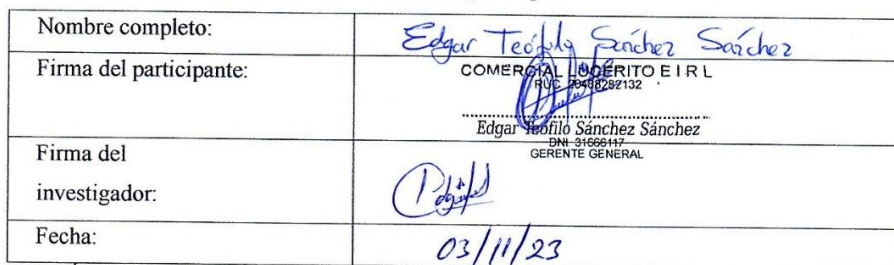 Nombre completo:
Edgar Teófilo Sánchez Sánchez
Firma del participante:
COMERCIAL LUCERITO E I R L
RUC
Edgar Teófilo Sánchez Sánchez
DNI 31666117
GERENTE GENERAL
Firma del
investigador:
Fecha:
03/11/23